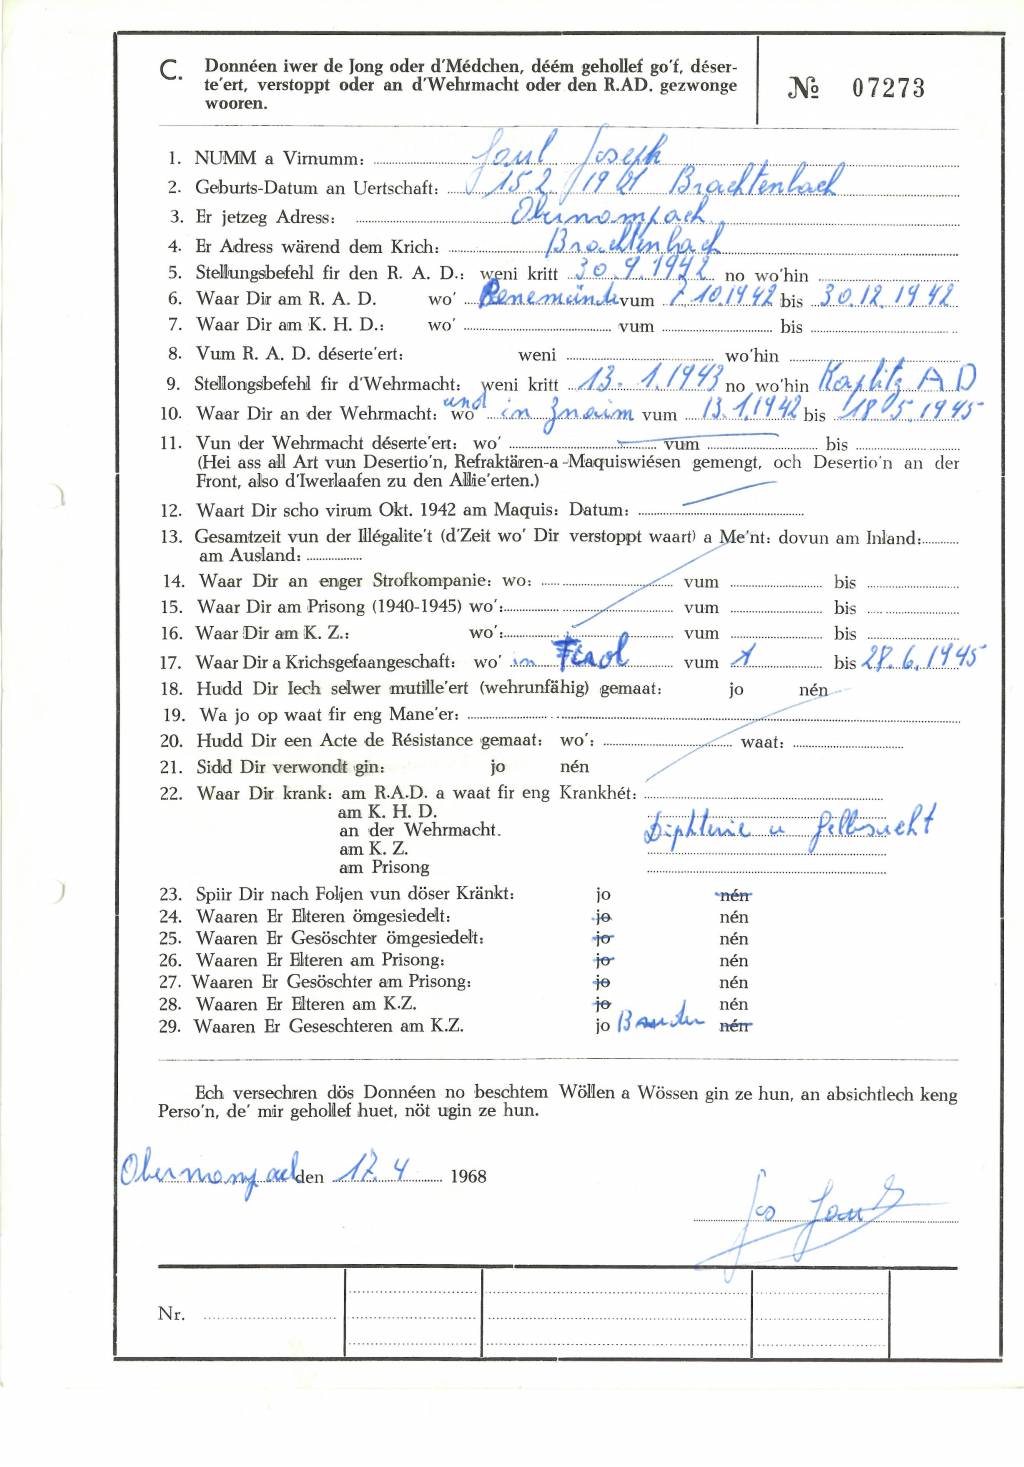 C. Donnéen iwer de Jong oder d'Médchen, déém gehollef go'f, déser-
te'ert, verstoppt oder an d'Wehrmacht oder den R.AD. gezwonge
wooren.
№ 07273
1. NUMM a Virnumm: Joseph
2. Geburts-Datum an Uertschaft: 15 2 1921 Brachtenbach
3. Er jetzeg Adress: Oberwampach
4. Er Adress wärend dem Krich: Brachtenbach
5. Stellungsbefehl fir den R. A. D.: weni kritt 30.9.1942 no wo'hin
6. Waar Dir am R. A. D. wo' Penemünde vum 7 10.1942 bis 30.12.1942
7. Waar Dir am K. H. D.: wo' vum bis
8. Vum R. A. D. déserte'ert: weni wo'hin
9. Stellongsbefehl fir d'Wehrmacht: weni kritt 13. 1.1943 no wo'hin Kaplitz A D
10. Waar Dir an der Wehrmacht: wo' und in Znaim vum 13.1.1942 bis 18 5.1945
11. Vun der Wehrmacht déserte'ert: wo' vum bis
(Hei ass all Art vun Desertio'n, Refraktären-a-Maquiswiésen gemengt, och Desertio'n an der
Front, also d'Iwerlaafen zu den Allie'erten.)
12. Waart Dir scho virum Okt. 1942 am Maquis: Datum:
13. Gesamtzeit vun der Illégalite't (d'Zeit wo' Dir verstoppt waart) a Me'nt: dovun am Inland:
am Ausland:
14. Waar Dir an enger Strofkompanie: wo: vum bis
15. Waar Dir am Prisong (1940-1945) wo': vum bis
16. Waar Dir am K. Z.: wo': vum bis
17. Waar Dir a Krichsgefaangeschaft: wo' in Tirol vum bis 28.6.1945
18. Hudd Dir Iech selwer mutille'ert (wehrunfähig) gemaat: jo nén
19. Wa jo op waat fir eng Mane'er:
20. Hudd Dir een Acte de Résistance gemaat: wo': waat:
21. Sidd Dir verwondt gin: jo nén
22. Waar Dir krank: am R.A.D. a waat fir eng Krankhét:
am K. H. D.
an der Wehrmacht. Diphterie u Gelbsucht
am K. Z.
am Prisong
23. Spiir Dir nach Foljen vun döser Kränkt: jo nén
24. Waaren Er Elteren ömgesiedelt: jo nén
25. Waaren Er Gesöschter ömgesiedelt: jo nén
26. Waaren Er Elteren am Prisong: jo nén
27. Waaren Er Gesöschter am Prisong: jo nén
28. Waaren Er Elteren am K.Z. jo nén
29. Waaren Er Geseschteren am K.Z. jo Bruder nén
Ech versechren dös Donnéen no beschtem Wöllen a Wössen gin ze hun, an absichtlech keng
Perso'n, de' mir gehollef huet, nöt ugin ze hun.
Oberwampach den 17. 4 1968
Jos
Nr.